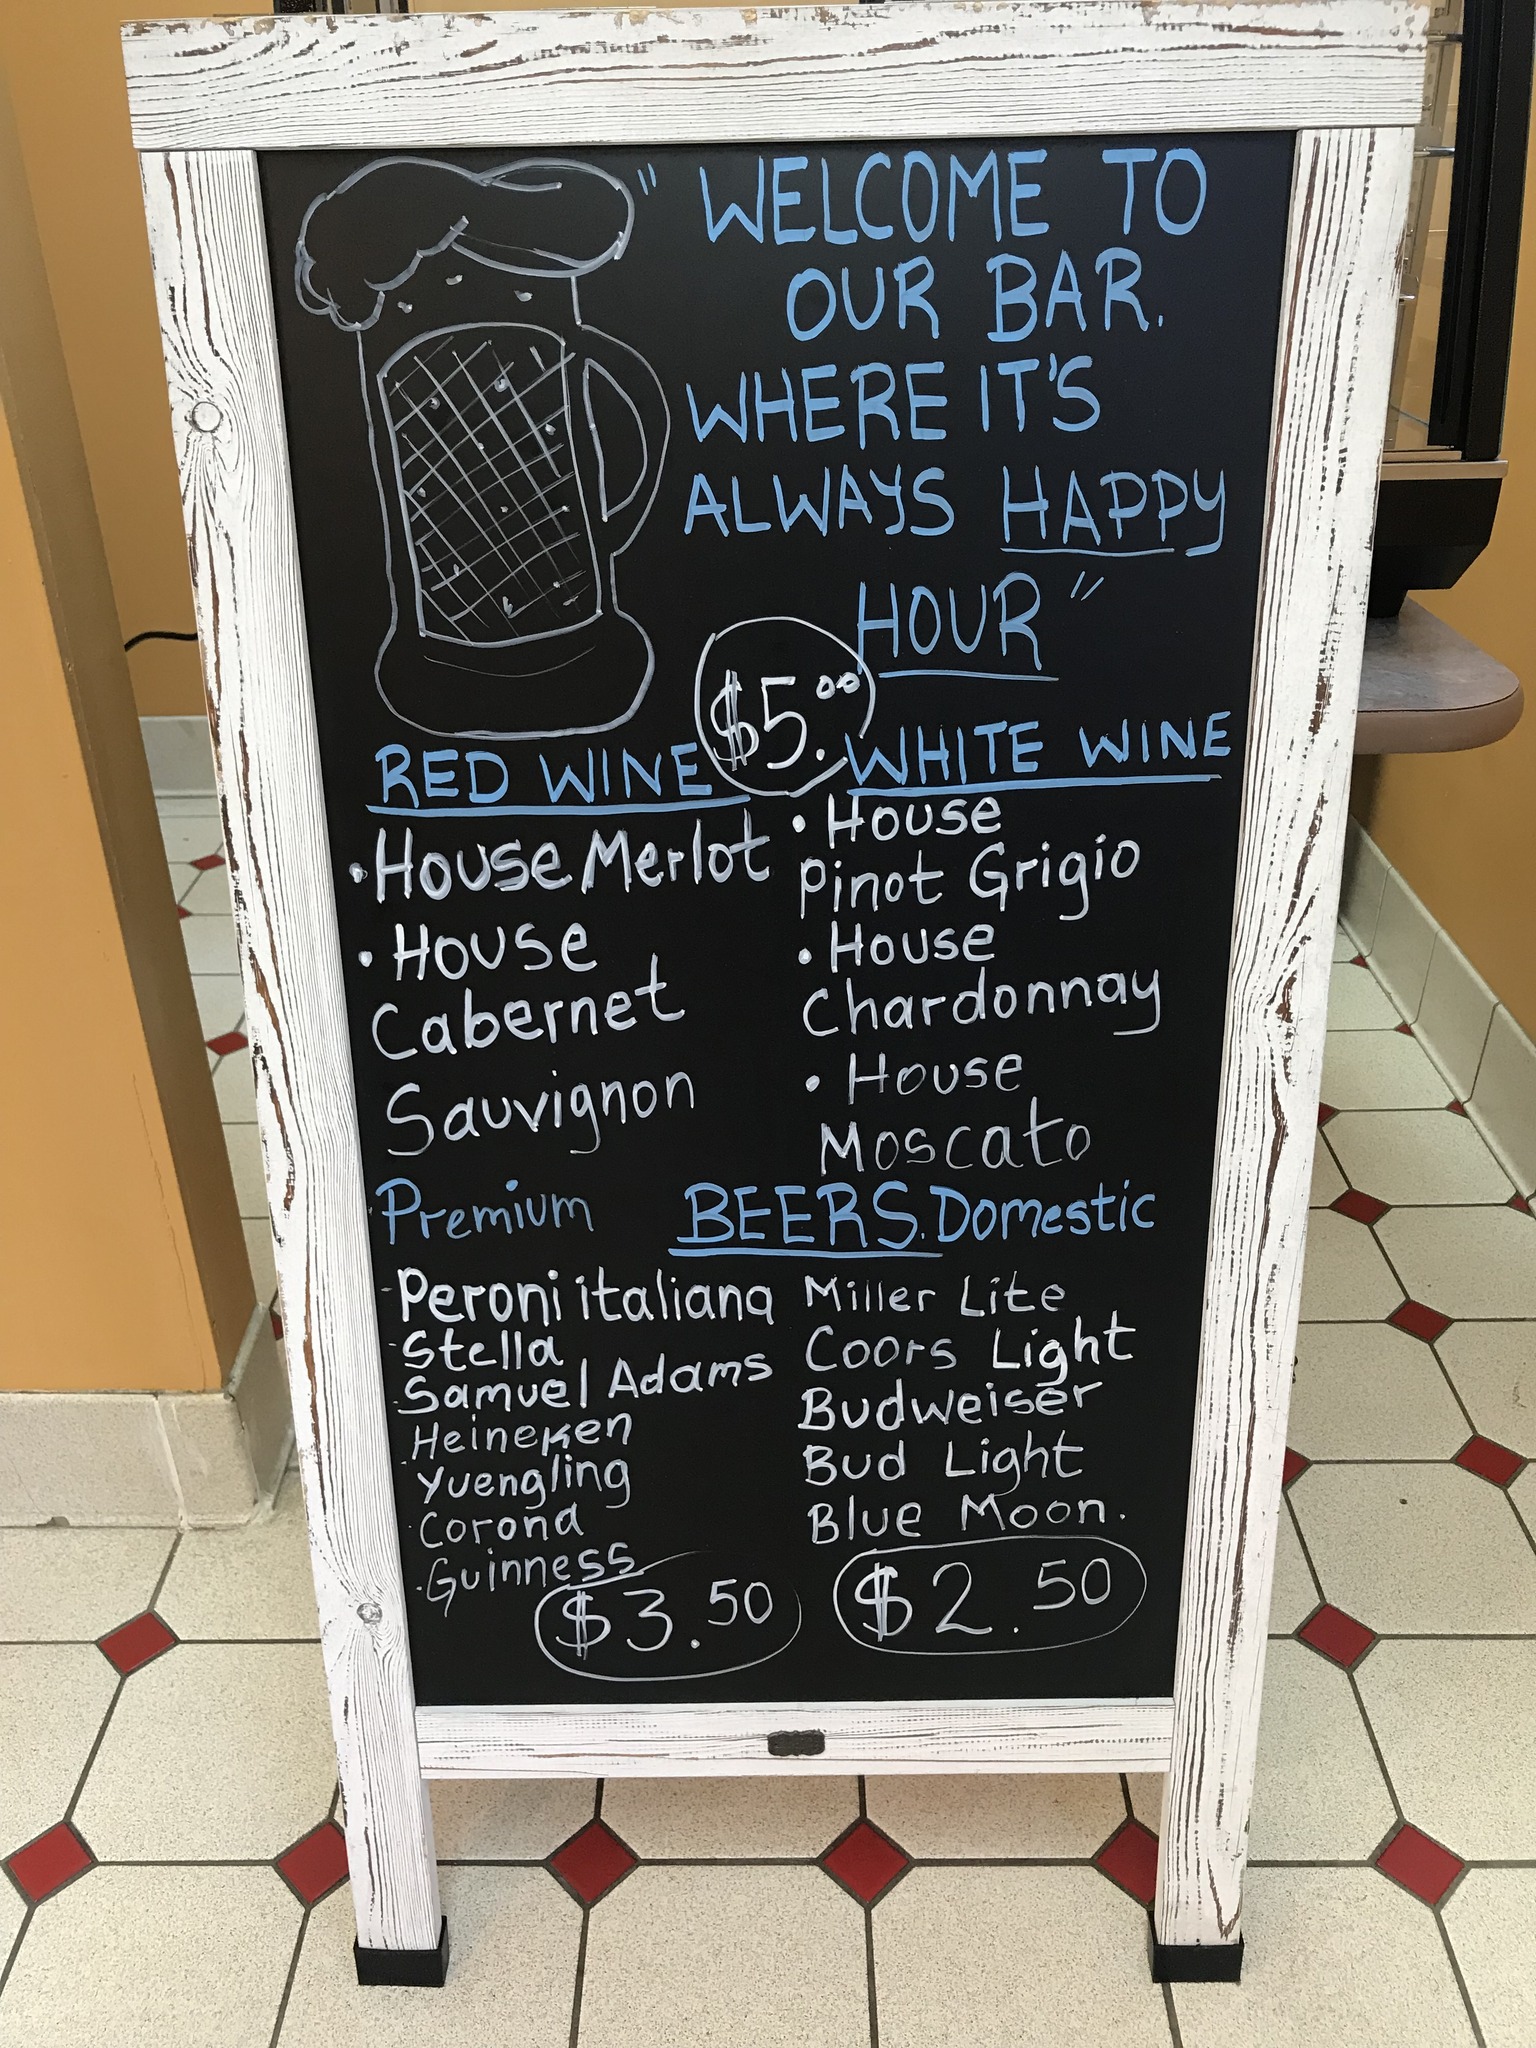 " WELCOME TO
OUR BAR.
WHERE IT'S
ALWAYS HAPPY
HOUR "
$5.00
RED WINE
• House Merlot
• House
Cabernet
Sauvignon
WHITE WINE
• House
Pinot Grigio
• House
Chardonnay
• House
Moscato
BEERS.
Premium
- Peroni italiana
- Stella
- Samuel Adams
- Heineken
- Yuengling
- Corona
- Guinness
$3.50
Domestic
Miller Lite
Coors Light
Budweiser
Bud Light
Blue Moon.
$2.50